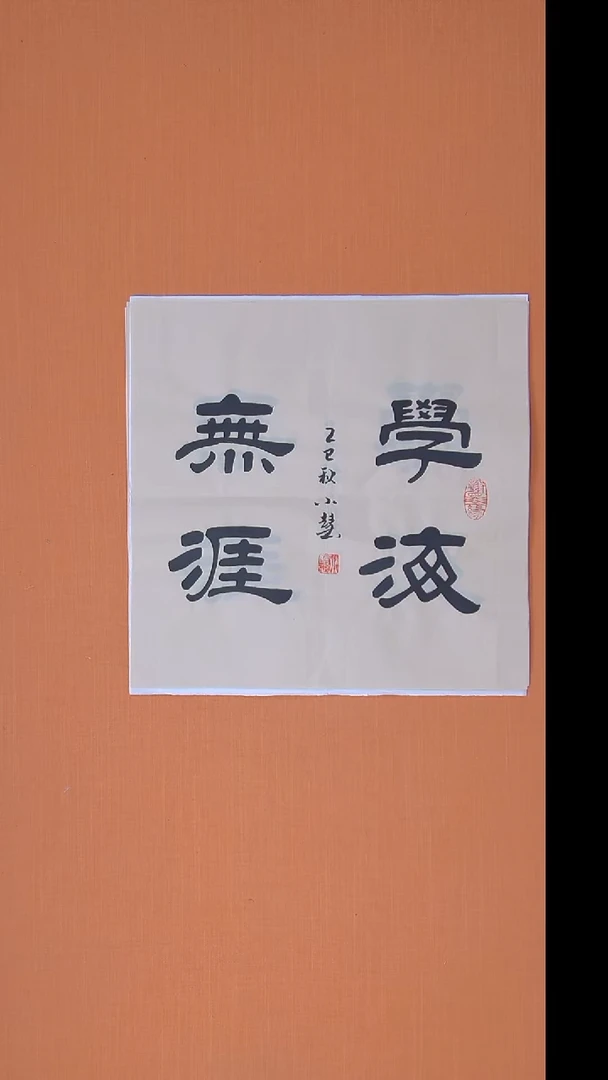 學海
無涯
乙巳秋小慧